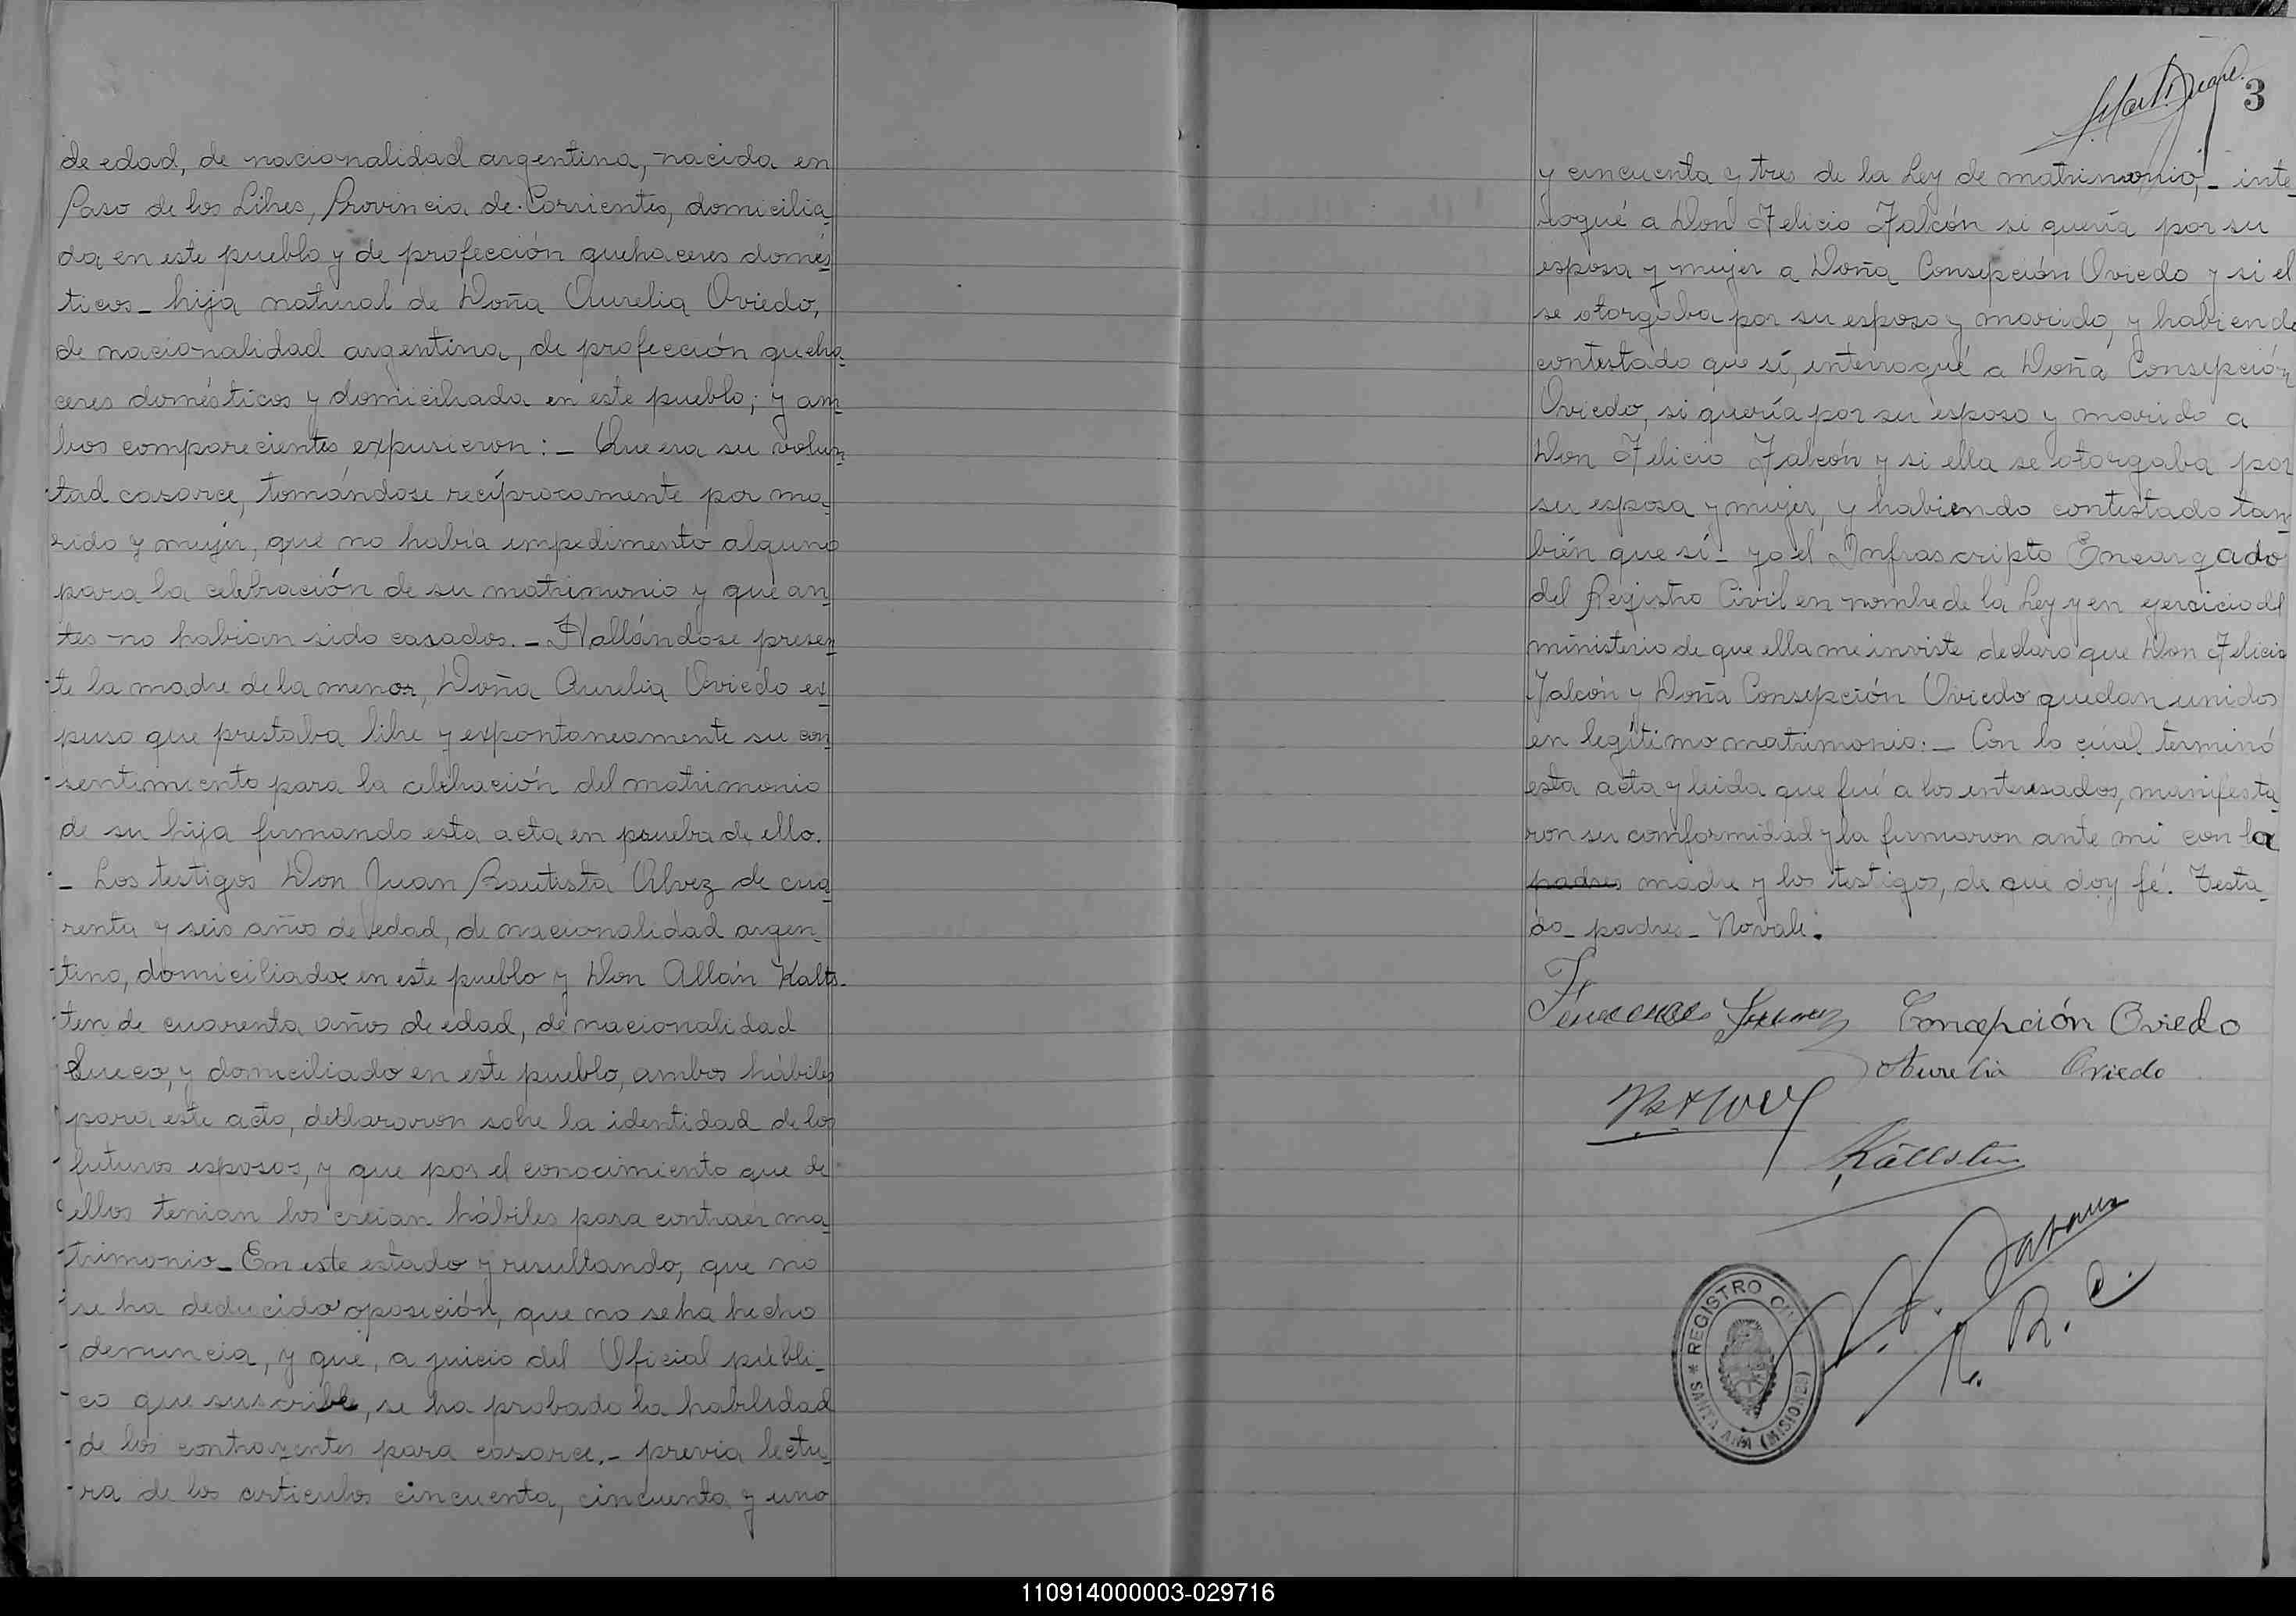 de edad, de nacionalidad argentina, nacida en
Paso de los Libres, Provincia de Corrientes, domicilia-
da en este pueblo y de profección quehaceres domés-
ticos - hija natural de Doña Aurelia Oviedo,
de nacionalidad argentina, de profección queha-
ceres domésticos y domiciliada en este pueblo; y am-
bos comparecientes expusieron: - Que era su volun-
tad casarce, tomándose recíprocamente por ma-
rido y mujer, que no había impedimento alguno
para la celebración de su matrimonio y que an-
tes no habian sido casados. - Hallándose presen-
te la madre de la menor, Doña Aurelia Oviedo ex-
puso que prestaba libre y expontaneamente su con-
sentimiento para la celebración del matrimonio
de su hija firmando esta acta en prueba de ello.
- Los testigos Don Juan Bautista Alvez de cua-
renta y seis años de edad, de nacionalidad argen-
tino, domiciliado en este pueblo y Don Allán Kals-
ten de cuarenta años de edad, de nacionalidad
Sueco, y domiciliado en este pueblo, ambos hábiles
para este acto, declararon sobre la identidad de los
futuros esposos, y que por el conocimiento que de
ellos tenian los creian hábiles para contraer ma-
trimonio - En este estado y resultando, que no
se ha deducido oposición, que no se ha hecho
denuncia, y que, a juicio del Oficial públi-
co que suscribe, se ha probado la habilidad
de los contrayentes para casarce. - previa lectu-
ra de los articulos cincuenta, cincuenta y uno
3
y cincuenta y tres de la Ley de matrimonio, - inte-
rroqué a Don Felicio Falcón si quería por su
esposa y mujer a Doña Consepción Oviedo y si el
se otorgaba por su esposo y marido, y habiendo
contestado que sí, interroqué a Doña Consepción
Oviedo, si quería por su esposo y marido a
Don Felicio Falcón y si ella se otorgaba por
su esposa y mujer, y habiendo contestado tam-
bién que sí - yo el Infrascripto Encargado
del Registro Civil en nombre de la Ley y en ejercicio del
ministerio de que ella me inviste declaro que Don Felicio
Falcón y Doña Consepción Oviedo quedan unidos
en legítimo matrimonio. - Con lo cúal terminó
esta acta y leida que fué a los interesados, manifesta-
ron su comformidad y la firmaron ante mi con la
padres madre y los testigos, de que doy fé. Testa-
do - padres - No vale.
Concepción Oviedo
Aurelia Oviedo
Källsten
E. R. C.
REGISTRO CIVIL
SANTA ANA (MISIONES)
110914000003-029716